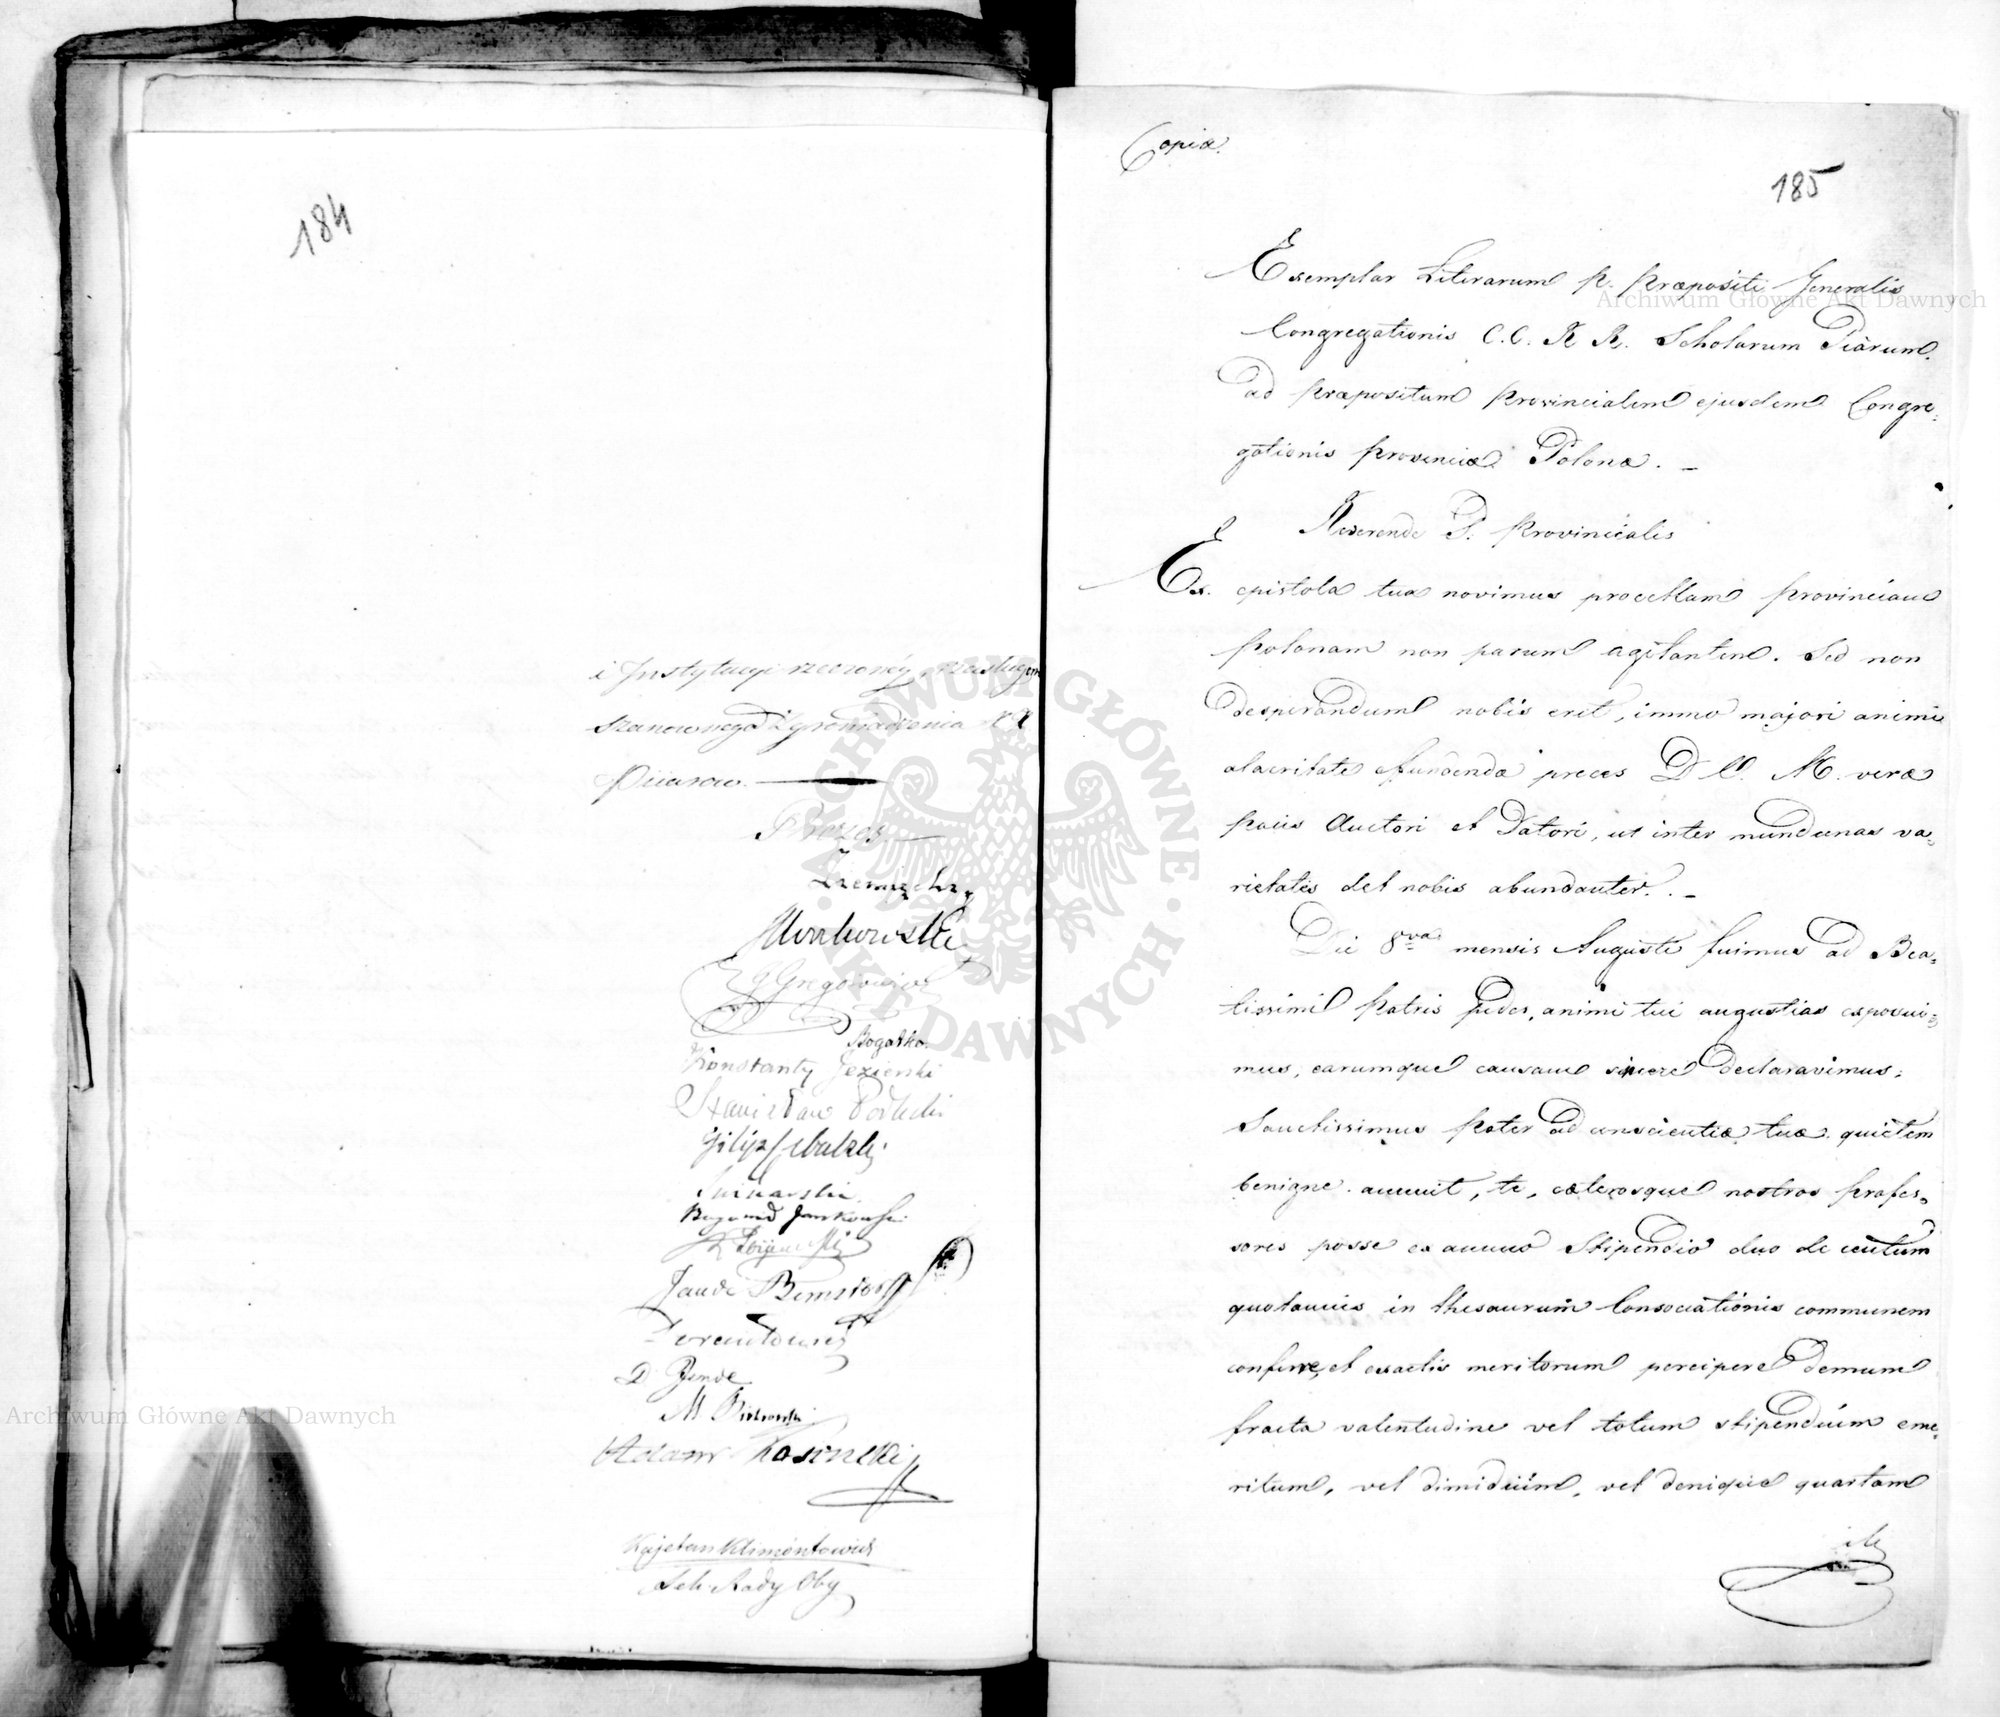 184
i Instytucyi rzeczonéy, zasługom
szanownego Zgromadzenia XX
Piiarow.
Prezes
Morkowski
Gregorowicz
Bogatko
Konstanty Jezierski
Stanisław
Filip
Jankowski
D
M
Adam Kasinski
Kajetan Klimontowicz
Sek. Rady Oby
Copia.
185
Exemplar Literarum P. Præpositi Generalis
Congregationis C.C. R R. Scholarum Piarum.
ad Præpositum Provincialem ejusdem Congre-
gationis Provinciæ Polonæ. _
Reverende P. Provincialis
Ex epistola tua novimus procellam Provinciam
Polonam non parum agitantem. Sed non
desperandum nobis erit, immo majori animi
alacritate effundendæ preces D. O. M. veræ
pacis Auctori et Datori, ut inter mundanas va-
rietates det nobis abundanter. _
Die 8va mensis Augusti fuimus ad Bea-
tissimi Patris pedes, animi tui angustias exposui-
mus, earumque causam sincere declaravimus;
Sanctissimus Pater ad conscientiæ tuæ quietem
benigne annuit, te, cæterosque nostros Profes-
sores posse ex annuo Stipendio duo de centum
quotannis in thesaurum Consociationis communem
conferre, et exactis meritorum percipere demum
fracta valentudine vel totum stipendium eme-
ritum, vel dimidium, vel denique quartam
Archiwum Główne Akt Dawnych
Archiwum Główne Akt Dawnych
ARCHIWUM GŁÓWNE AKT DAWNYCH